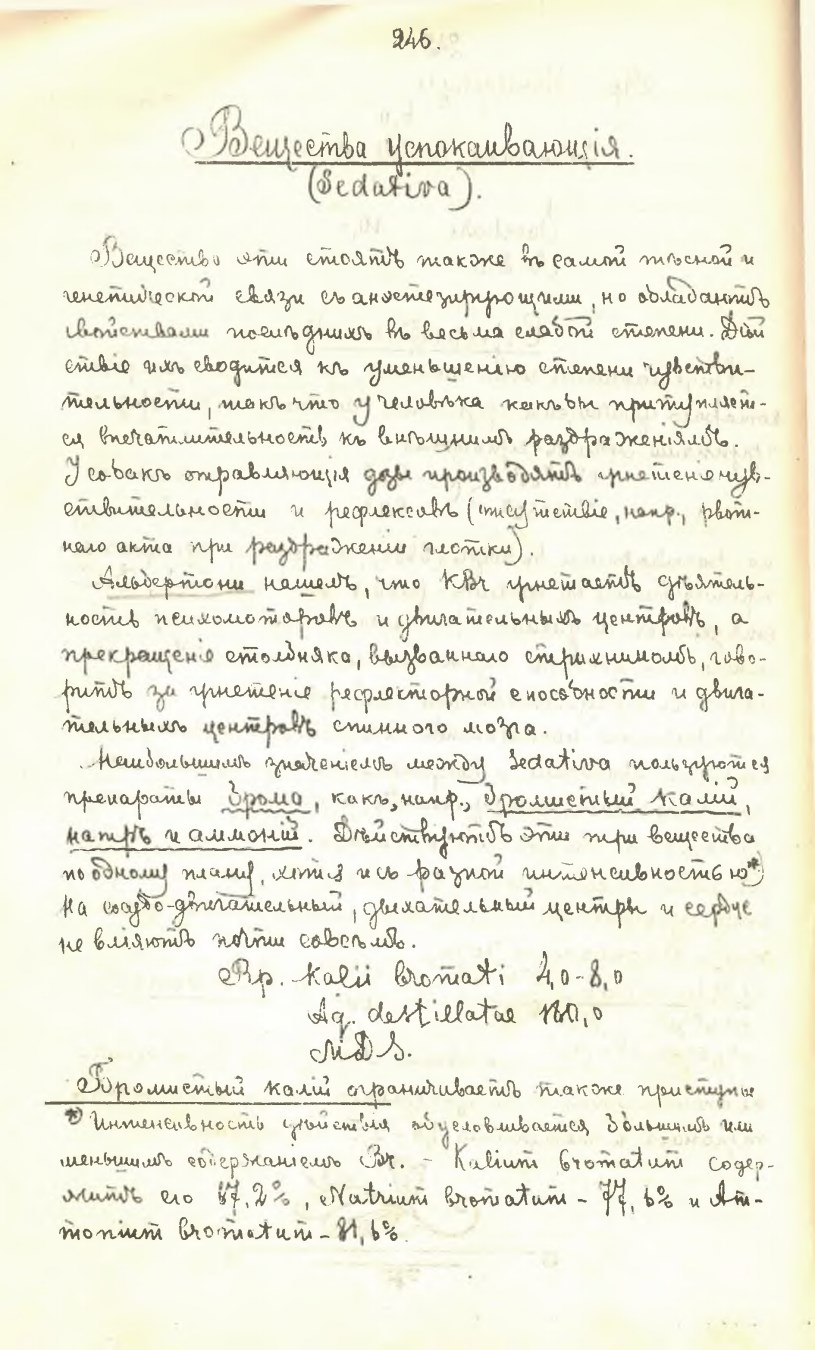 246.
Вещества успокаивающія.
(Sedativa).
Вещества эти стоятъ также въ самой тѣсной и
генетической связи съ анэстезирующими, но обладаютъ
свойствами послѣднихъ въ весьма слабой степени. Дѣй
ствіе ихъ сводится къ уменьшенію степени чувстви-
тельности, такъ что у человѣка какъ бы притупляет-
ся впечатлительность къ внѣшнимъ раздраженіямъ.
У собакъ отравляющія дозы производятъ угнетеніе чув-
ствительности и рефлексовъ (отсутствіе, напр., рвот-
наго акта при раздраженіи глотки).
Альбертони нашелъ, что KBr угнетаетъ дѣятель-
ность психомоторовъ и двигательныхъ центровъ, а
прекращеніе столбняка, вызваннаго стрихниномъ, гово-
ритъ за угнетеніе рефлекторной способности и двига-
тельныхъ центровъ спинного мозга.
Наибольшимъ значеніемъ между Sedativa пользуются
препараты брома, какъ, напр., бромистый калій,
натръ и аммоній. Дѣйствуютъ эти три вещества
по одному плану, хотя и съ разной интенсивностью*)
На сосудо-двигательный, дыхательный центры и сердце
не вліяютъ почти совсѣмъ.
Rp. Kalii bromati 4,0-8,0
Aq. destillatae 180,0
MDS.
Бромистый калій ограничиваетъ также приступы
*) Интенсивность дѣйствія обусловливается большимъ или
меньшимъ содержаніемъ Br. - Kalium bromatum содер-
житъ его 67,2%, Natrium bromatum - 77,6% и Am-
monium bromatum - 81,6%.